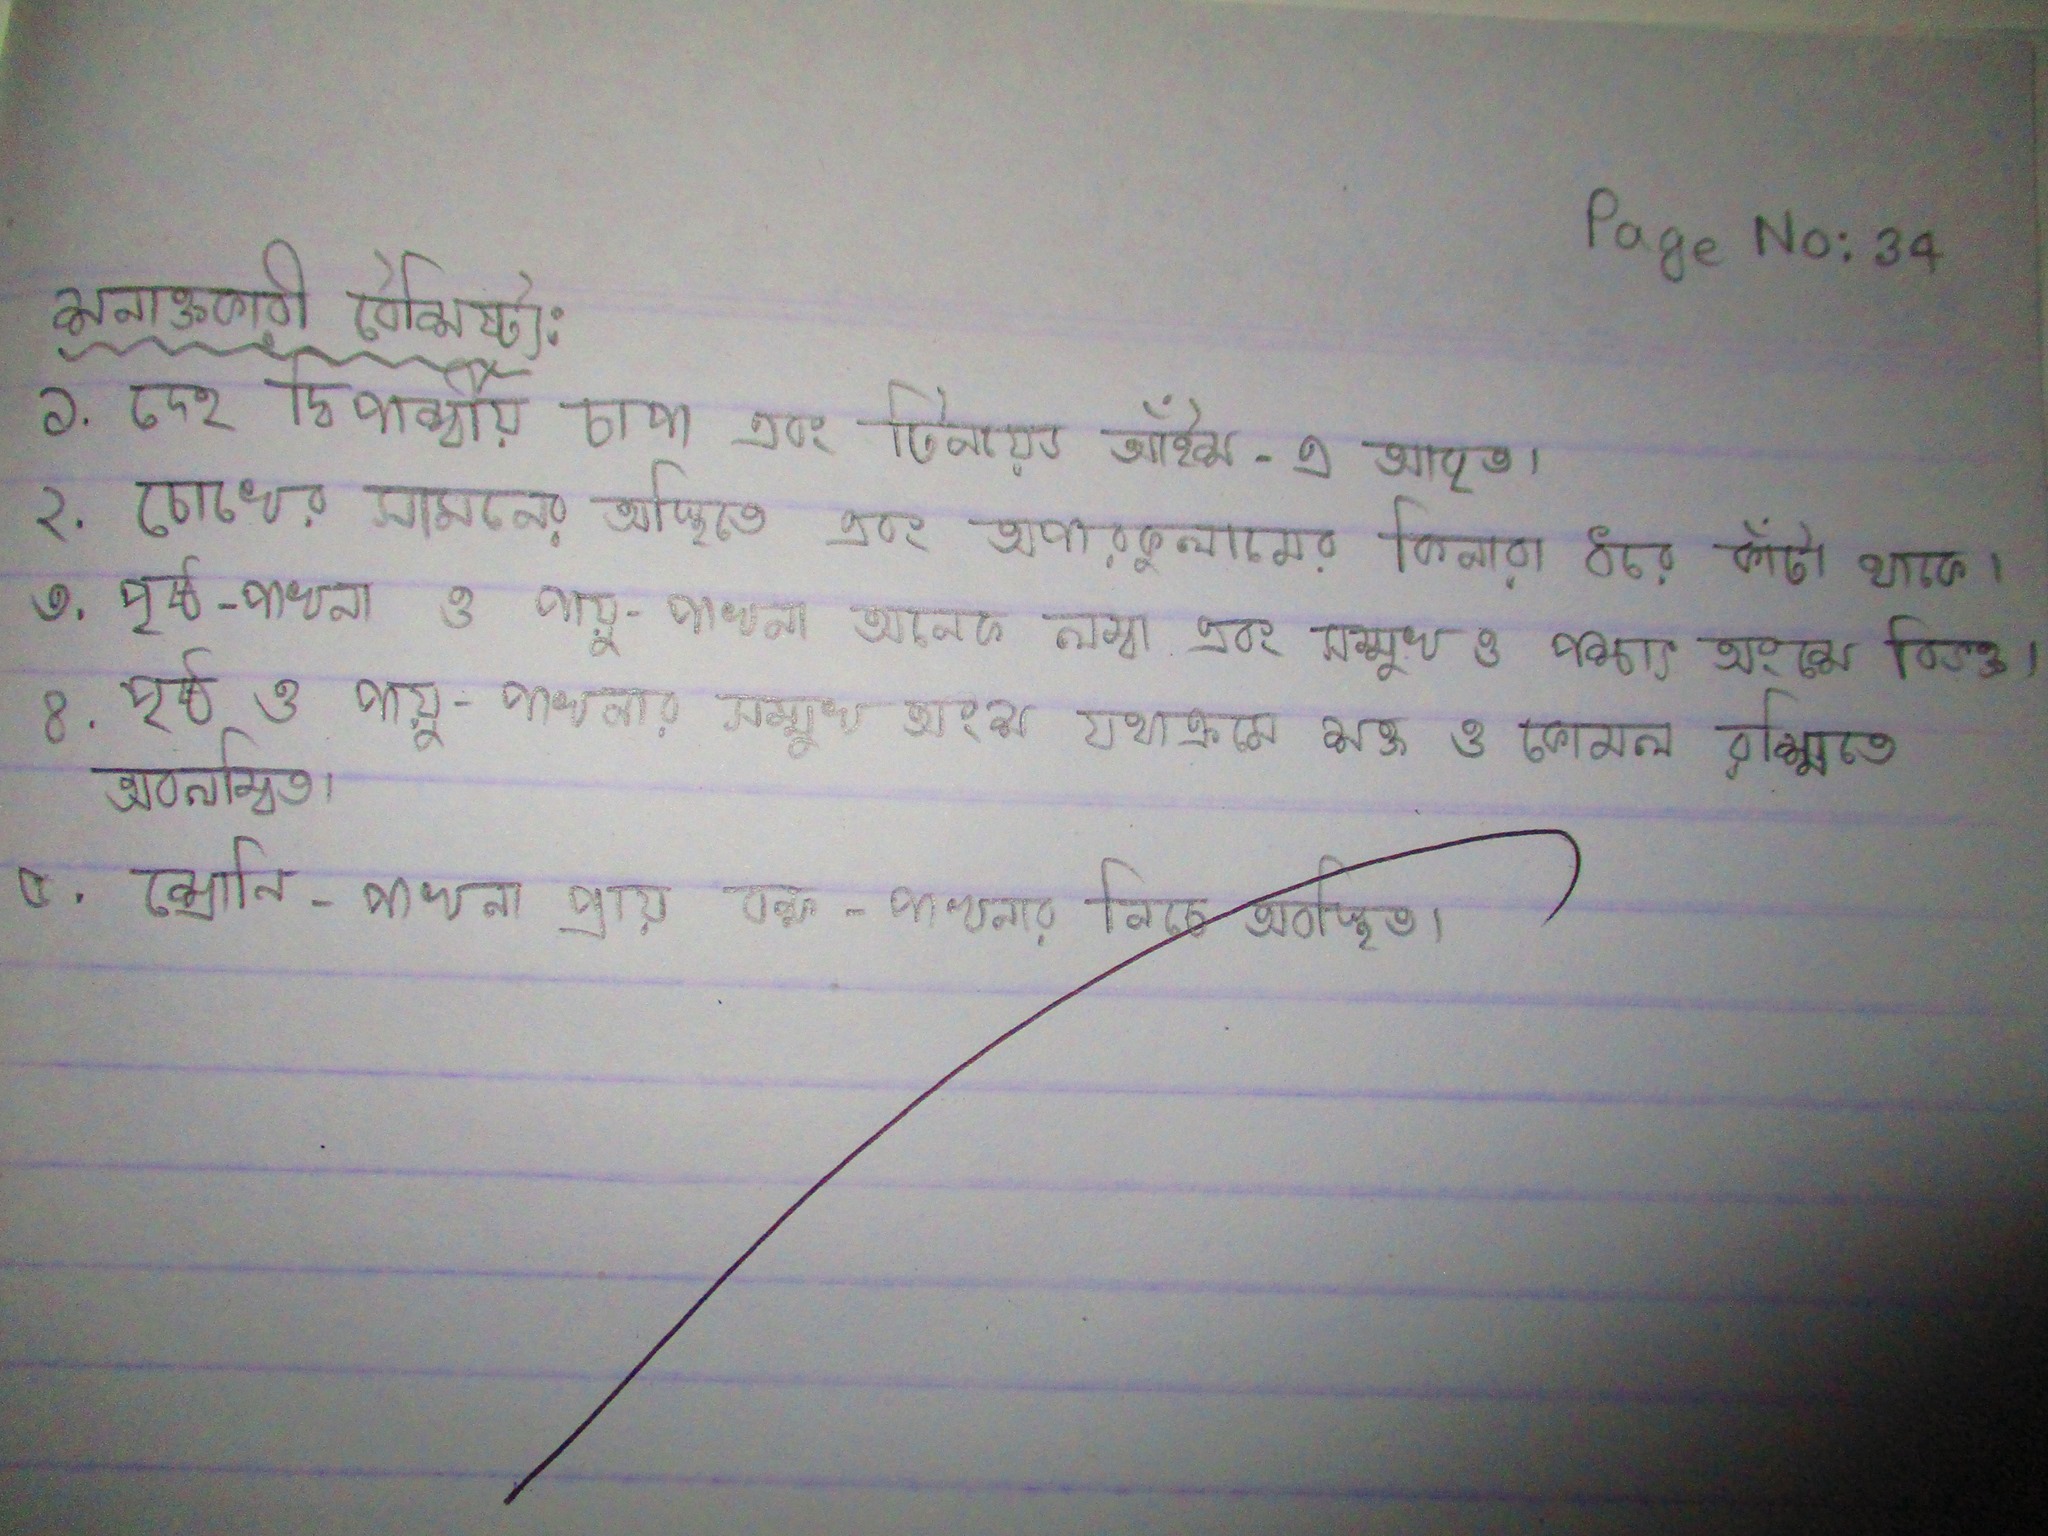 Page No: 34
শনাক্তকারী বৈশিষ্ট্য:
১. দেহ দ্বিপার্শ্বীয় চাপা এবং টিনয়েড আঁইশ - এ আবৃত।
২. চোখের সামনের অস্থিতে এবং অপারকুলামের কিনারা ধরে কাঁটা থাকে।
৩. পৃষ্ঠ-পাখনা ও পায়ু-পাখনা অনেক লম্বা এবং সম্মুখ ও পশ্চাৎ অংশে বিভক্ত।
৪. পৃষ্ঠ ও পায়ু-পাখনার সম্মুখ অংশ যথাক্রমে শক্ত ও কোমল রশ্মিতে
অবলম্বিত।
৫. শ্রোনি - পাখনা প্রায় বক্ষ - পাখনার নিচে অবস্থিত।